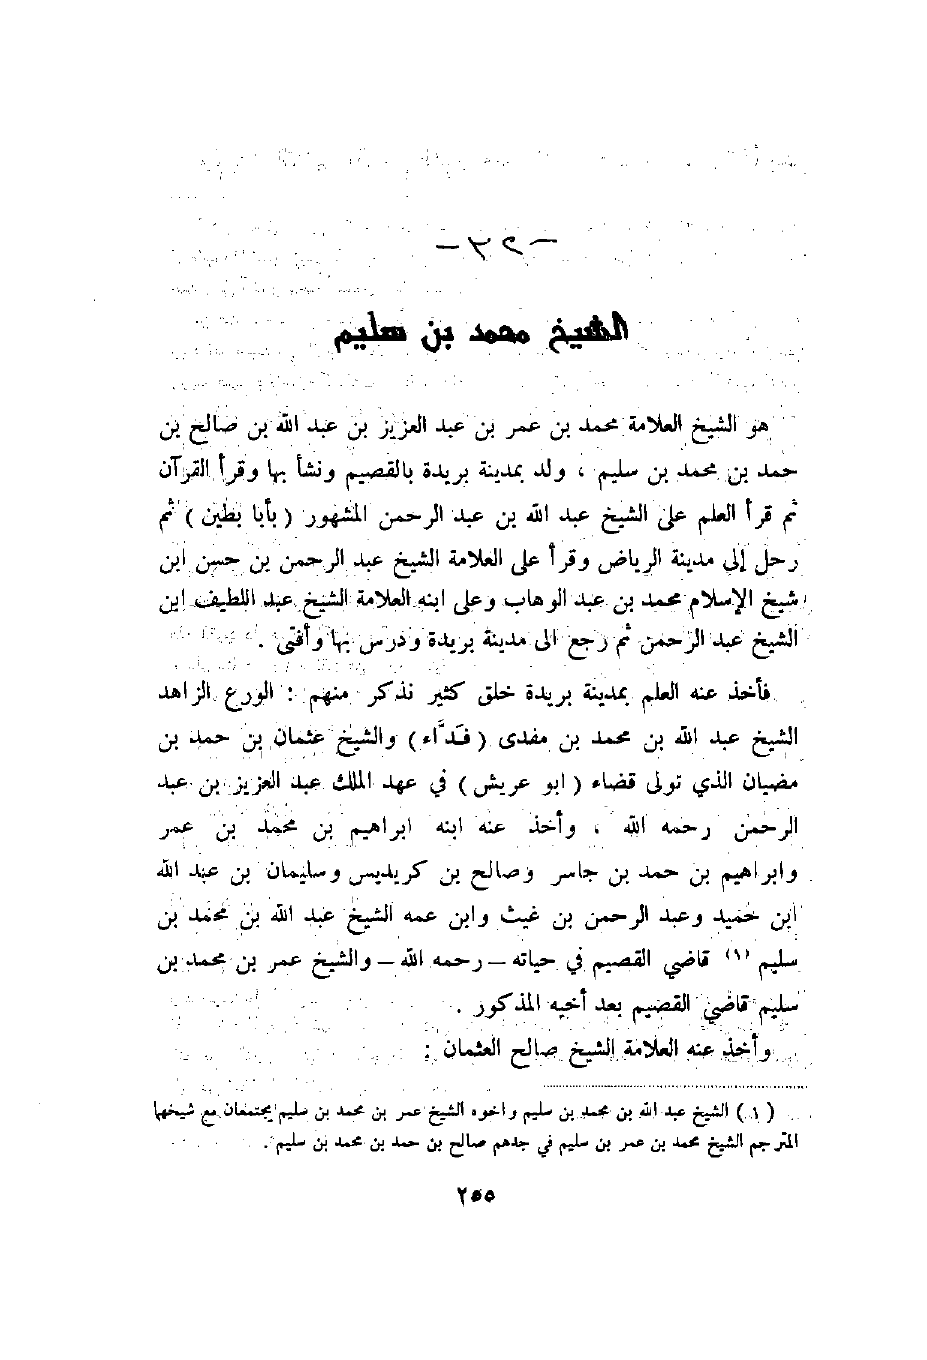 الشيخ محمد بن سليم
هو الشيخ العلامة محمد بن عمر بن عبد العزيز بن عبد الله بن صالح بن
حمد بن محمد بن سليم ، ولد بمدينة بريدة بالقصيم ونشأ بها وقرأ القرآن
ثم قرأ العلم على الشيخ عبد الله بن عبد الرحمن المشهور ( بأبا بطين ) ثم
رحل إلى مدينة الرياض وقرأ على العلامة الشيخ عبد الرحمن بن حسن ابن
شيخ الإسلام محمد بن عبد الوهاب وعلى ابنه العلامة الشيخ عبد اللطيف ابن
الشيخ عبد الرحمن ثم رجع الى مدينة بريدة ودرس بها وأفتى .
فأخذ عنه العلم بمدينة بريدة خلق كثير نذكر منهم : الورع الزاهد
الشيخ عبد الله بن محمد بن مفدى ( فدَّاء ) والشيخ عثمان بن حمد بن
مضيان الذي تولى قضاء ( ابو عريش ) في عهد الملك عبد العزيز بن عبد
الرحمن رحمه الله ، وأخذ عنه ابنه ابراهيم بن محمد بن عمر
وابراهيم بن حمد بن جاسر وصالح بن كريديس وسليمان بن عبد الله
ابن حميد وعبد الرحمن بن غيث وابن عمه الشيخ عبد الله بن محمد بن
سليم (١) قاضي القصيم في حياته – رحمه الله – والشيخ عمر بن محمد بن
سليم قاضي القصيم بعد أخيه المذكور .
وأخذ عنه العلامة الشيخ صالح العثمان :
( ١ ) الشيخ عبد الله بن محمد بن سليم واخوه الشيخ عمر بن محمد بن سليم يجتمعان مع شيخها
المترجم الشيخ محمد بن عمر بن سليم في جدهم صالح بن حمد بن محمد بن سليم .
٢٥٥